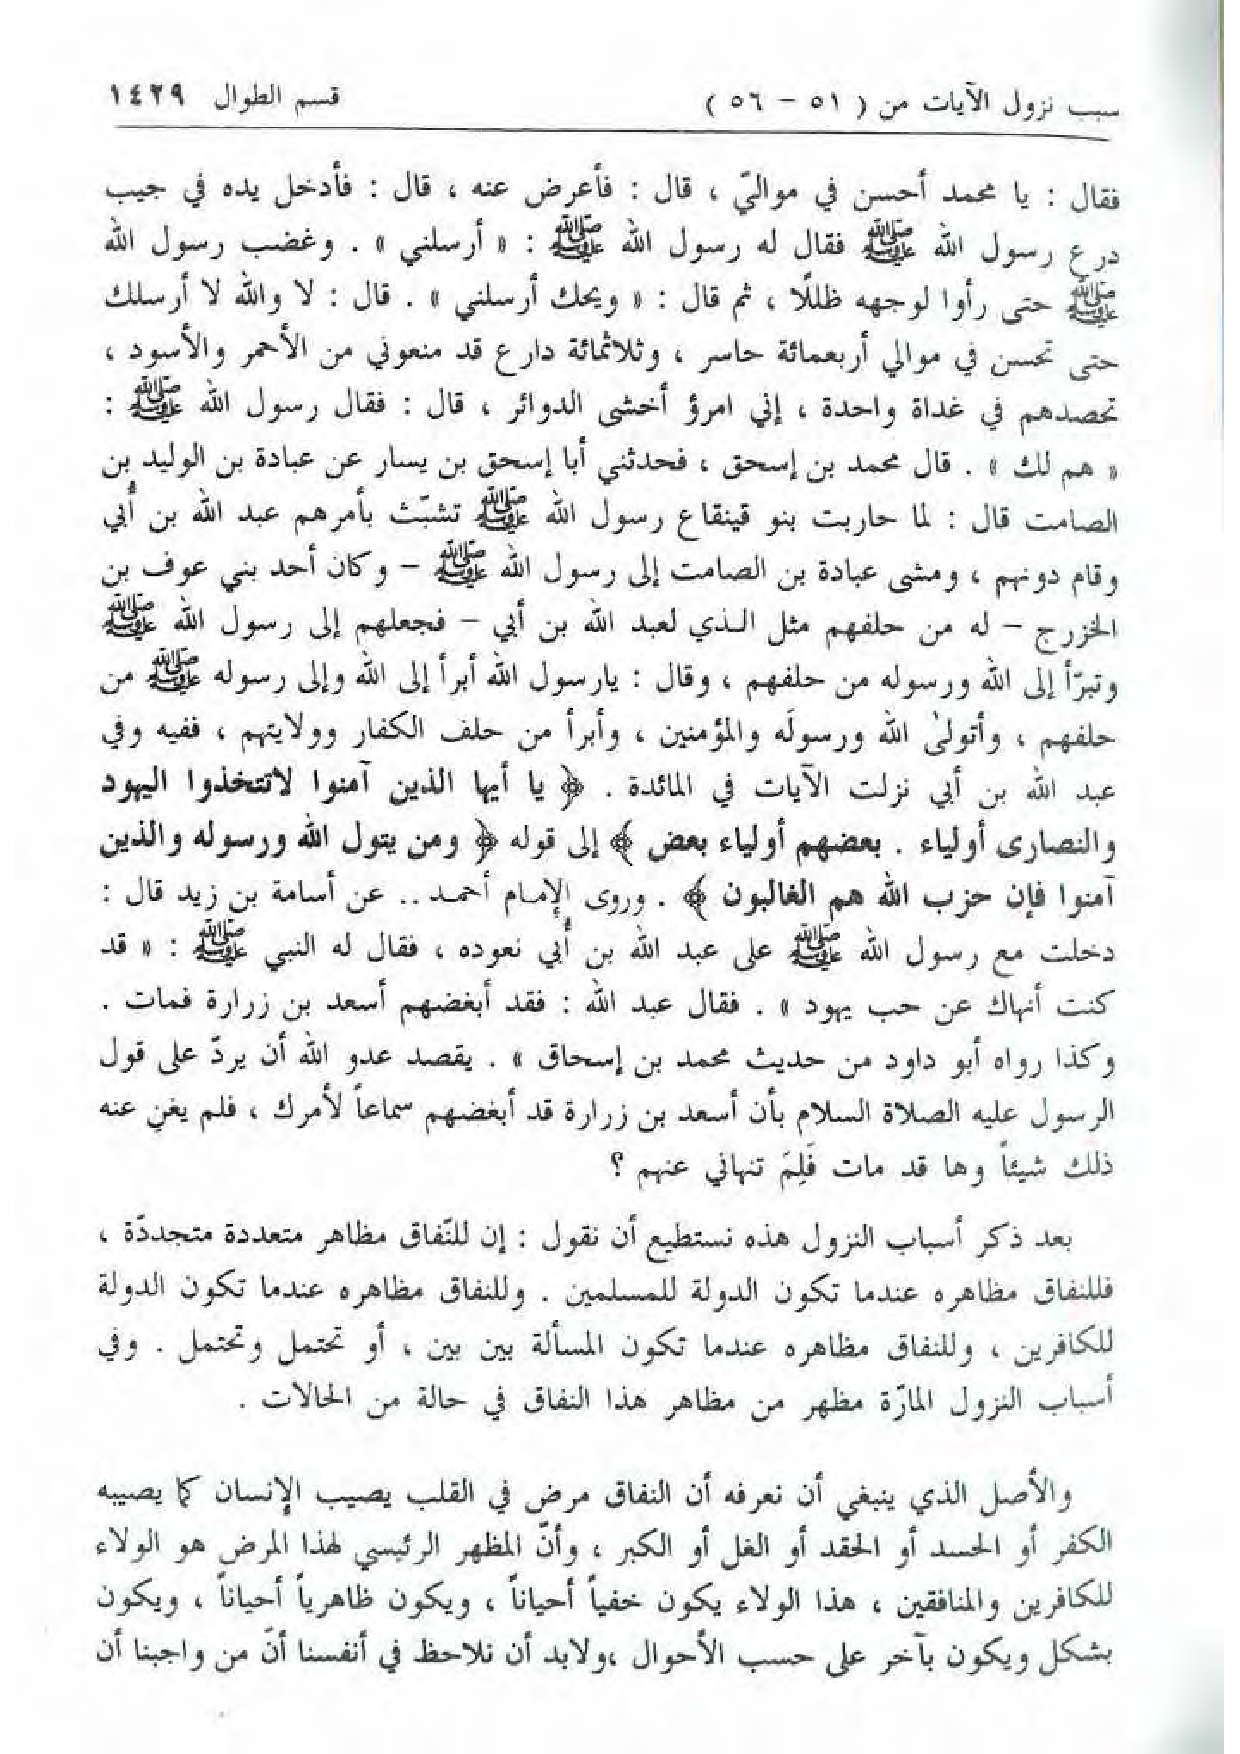 سبب نزول الآيات من ( ٥١ - ٥٦ ) قسم الطوال ١٤٢٩
فقال : يا محمد أحسن في مواليّ ، قال : فأعرض عنه ، قال : فأدخل يده في جيب
درع رسول الله ﷺ فقال له رسول الله ﷺ : « أرسلني » . وغضب رسول الله
ﷺ حتى رأوا لوجهه ظللًا ، ثم قال : « ويحك أرسلني » . قال : لا والله لا أرسلك
حتى تحسن في موالي أربعمائة حاسر ، وثلاثمائة دارع قد منعوني من الأحمر والأسود ،
تحصدهم في غداة واحدة ، إني امرؤ أخشى الدوائر ، قال : فقال رسول الله ﷺ :
« هم لك » . قال محمد بن إسحق ، فحدثني أبا إسحق بن يسار عن عبادة بن الوليد بن
الصامت قال : لما حاربت بنو قينقاع رسول الله ﷺ تشبّث بأمرهم عبد الله بن أُبي
وقام دونهم ، ومشى عبادة بن الصامت إلى رسول الله ﷺ - وكان أحد بني عوف بن
الخزرج - له من حلفهم مثل الذي لعبد الله بن أبي - فجعلهم إلى رسول الله ﷺ
وتبرّأ إلى الله ورسوله من حلفهم ، وقال : يارسول الله أبرأ إلى الله وإلى رسوله ﷺ من
حلفهم ، وأتولىٰ الله ورسولَه والمؤمنين ، وأبرأ من حلف الكفار وولايتهم ، ففيه وفي
عبد الله بن أبي نزلت الآيات في المائدة . ﴿ يا أيها الذين آمنوا لاتتخذوا اليهود
والنصارى أولياء . بعضهم أولياء بعض ﴾ إلى قوله ﴿ ومن يتول الله ورسوله والذين
آمنوا فإن حزب الله هم الغالبون ﴾ . وروى الإمام أحمد .. عن أسامة بن زيد قال :
دخلت مع رسول الله ﷺ على عبد الله بن أُبي نعوده ، فقال له النبي ﷺ : « قد
كنت أنهاك عن حب يهود » . فقال عبد الله : فقد أبغضهم أسعد بن زرارة فمات .
وكذا رواه أبو داود من حديث محمد بن إسحاق » . يقصد عدو الله أن يردّ على قول
الرسول عليه الصلاة السلام بأن أسعد بن زرارة قد أبغضهم سماعاً لأمرك ، فلم يغن عنه
ذلك شيئاً وها قد مات فَلِمَ تنهاني عنهم ؟
بعد ذكر أسباب النزول هذه نستطيع أن نقول : إن للنّفاق مظاهر متعددة متجددّة ،
فللنفاق مظاهره عندما تكون الدولة للمسلمين . وللنفاق مظاهره عندما تكون الدولة
للكافرين ، وللنفاق مظاهره عندما تكون المسألة بين بين ، أو تحتمل وتحتمل . وفي
أسباب النزول المارّة مظهر من مظاهر هذا النفاق في حالة من الحالات .
والأصل الذي ينبغي أن نعرفه أن النفاق مرض في القلب يصيب الإنسان كما يصيبه
الكفر أو الحسد أو الحقد أو الغل أو الكبر ، وأنّ المظهر الرئيسي لهذا المرض هو الولاء
للكافرين والمنافقين ، هذا الولاء يكون خفياً أحياناً ، ويكون ظاهرياً أحياناً ، ويكون
بشكل ويكون بآخر على حسب الأحوال ،ولابد أن نلاحظ في أنفسنا أنّ من واجبنا أن